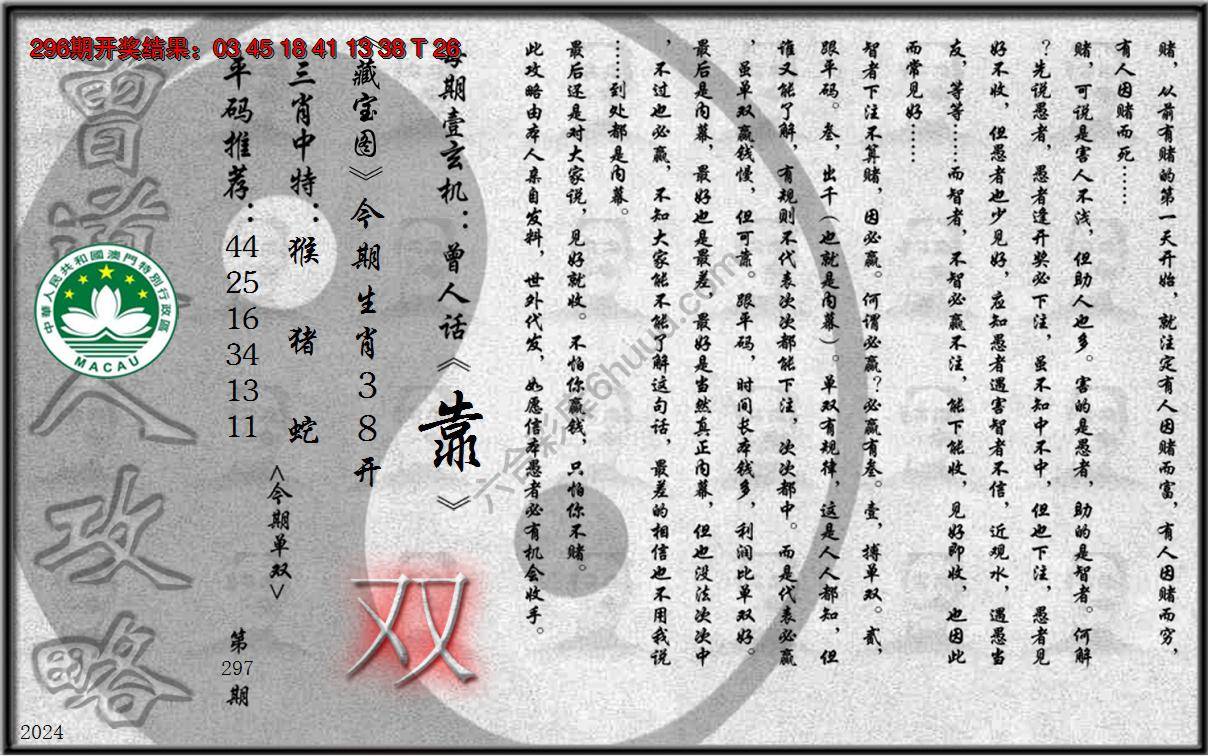 296期开奖结果：03 45 18 41 13 38 T 26
赌，从前有赌的第一天开始，就注定有人因赌而富，有人因赌而穷，
有人因赌而死……
赌，可说是害人不浅，但助人也多。害的是愚者，助的是智者。何解
？先说愚者，愚者逢开奖必下注，虽不知中不中，但也下注，愚者见
好不收，但愚者也少见好，应知愚者遇害智者不信，近观水，遇愚当
友，等等……而智者，不智必赢不注，能下能收，见好即收，也因此
而常见好……
智者下注不算赌，因必赢。何谓必赢？必赢有叁。壹，搏单双。贰，
跟平码。叁，出千（也就是内幕）。单双有规律，这是人人都知，但
谁又能了解，有规则不代表次次都能下注，次次都中。而是代表必赢
，虽单双赢钱慢，但可靠。跟平码，时间长本钱多，利润比单双好。
最后是内幕，最好也是最差，最好是当然真正内幕，但也没法次次中
，不过也必赢，不知大家能不能了解这句话，最差的相信也不用我说
……到处都是内幕。
最后还是对大家说，见好就收。不怕你赢钱，只怕你不赌。
此攻略由本人亲自发料，世外代发，如愿信本愚者必有机会收手。
每期壹玄机：曾人话《靠》
《藏宝图》今期生肖38开
双
三肖中特：猴 猪 蛇
<今期单双>
平码推荐：44 25 16 34 13 11
第297期
曾道人攻略
中華人民共和國澳門特別行政區
MACAU
2024
六合彩库6huuu.com